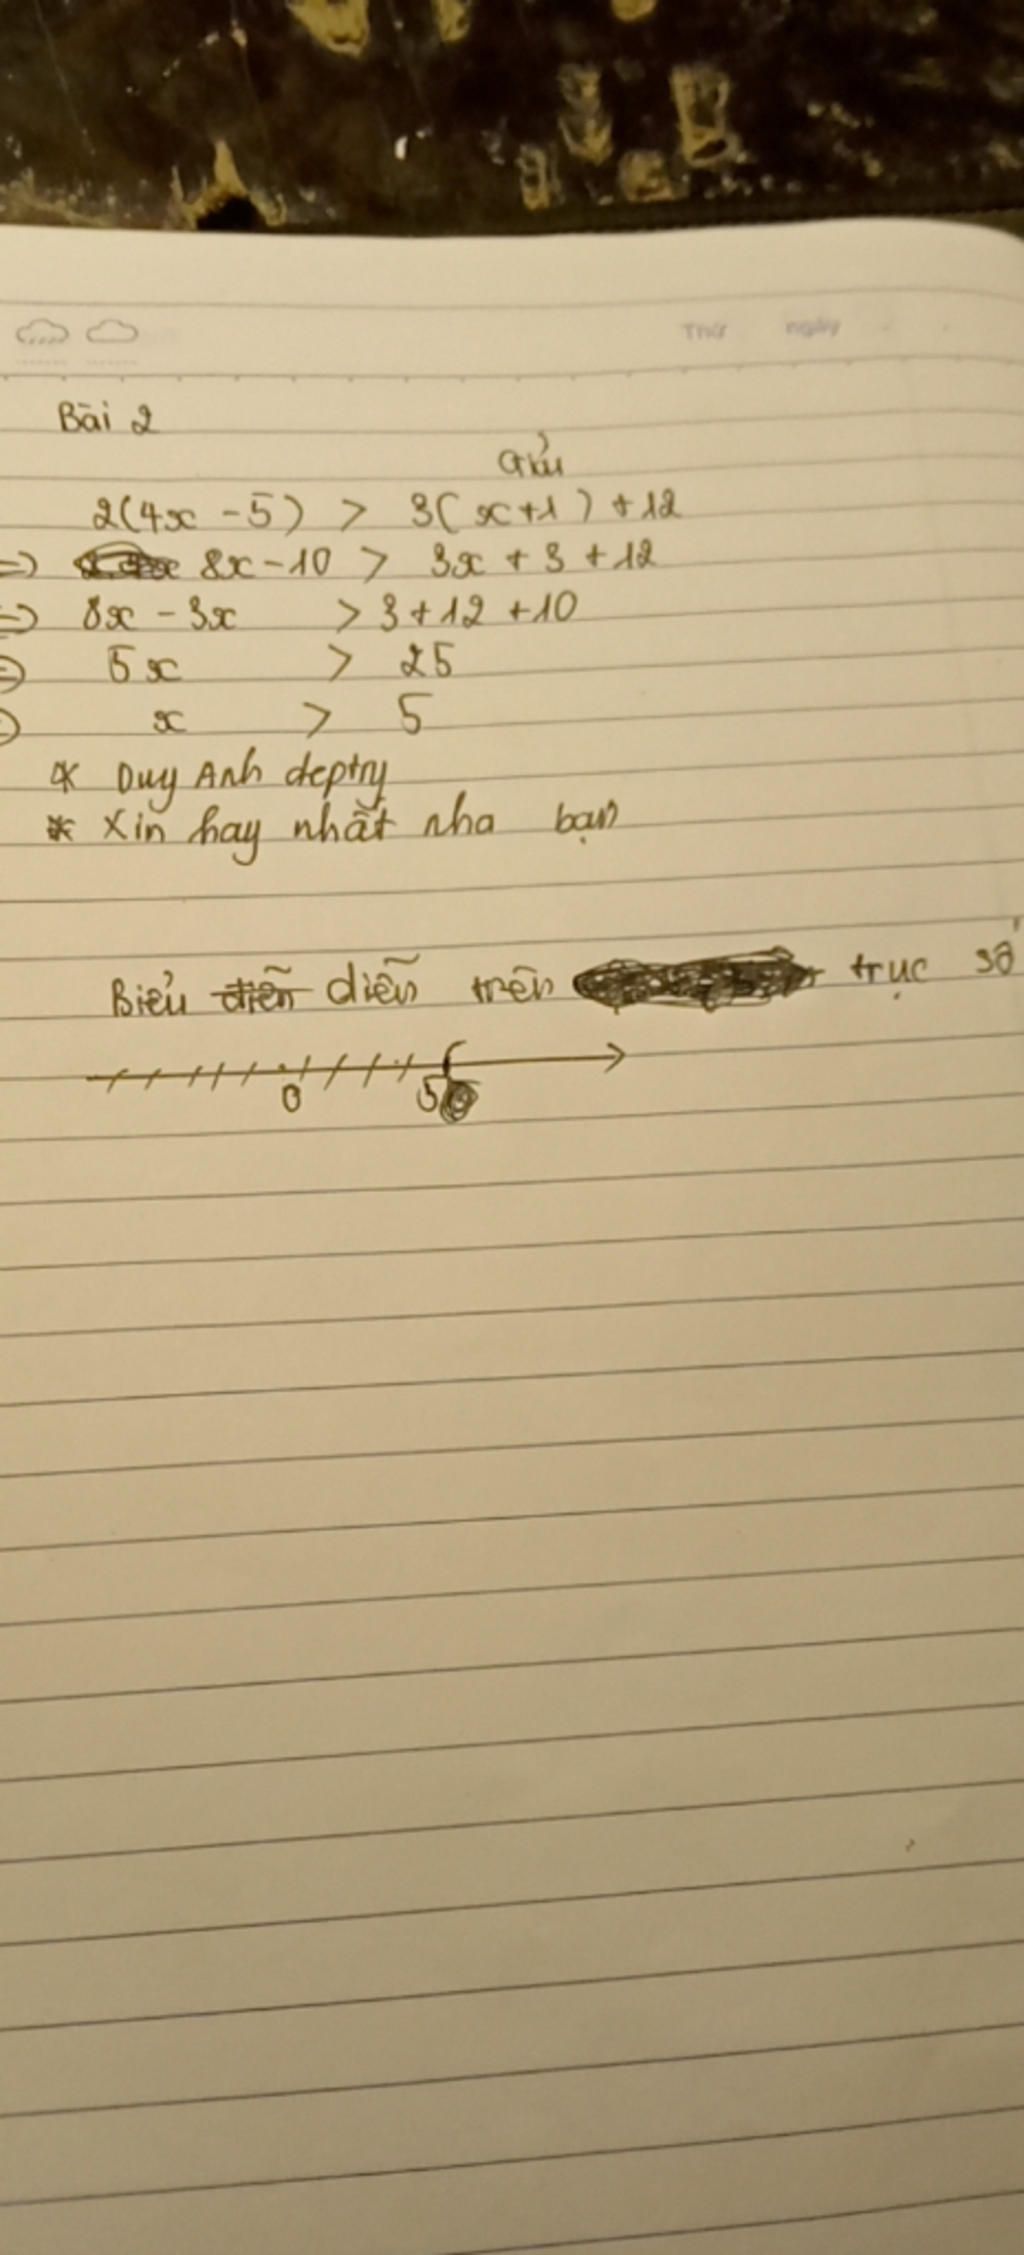 Thứ ngày
Bài 2
Giải
2(4x - 5) > 3(x+1) + 12
=) 8x - 10 > 3x + 3 + 12
=) 8x - 3x > 3 + 12 + 10
=) 5x > 25
=) x > 5
* Duy Anh deptry
* Xin hay nhất nha bạn
Biểu diễn diễn trên trục số
0 5